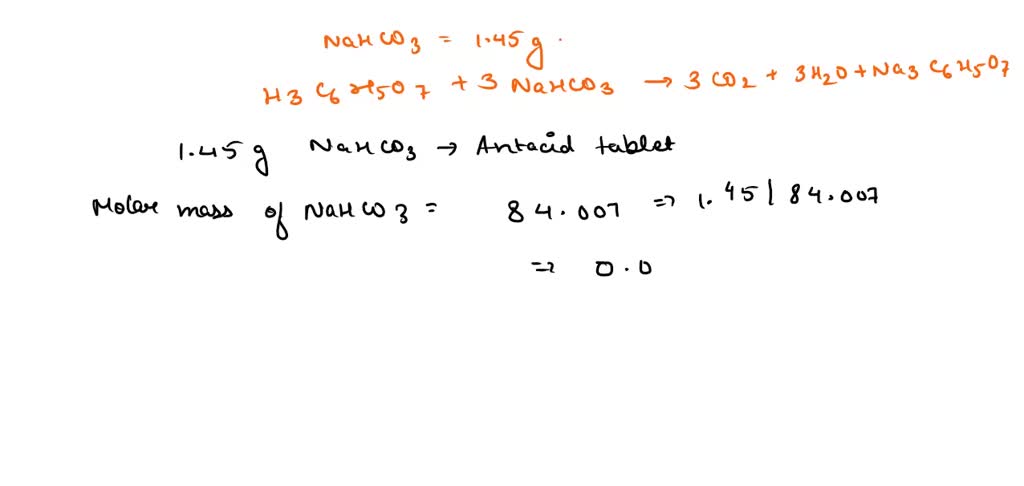 NaHCO3 = 1.45 g.
H3 C6 H5O7 + 3 NaHCO3 → 3 CO2 + 3H2O + Na3 C6H5O7
1.45 g NaHCO3 → Antacid tablet
Molar mass of NaHCO3 = 84.007 => 1.45 | 84.007
=> 0.0